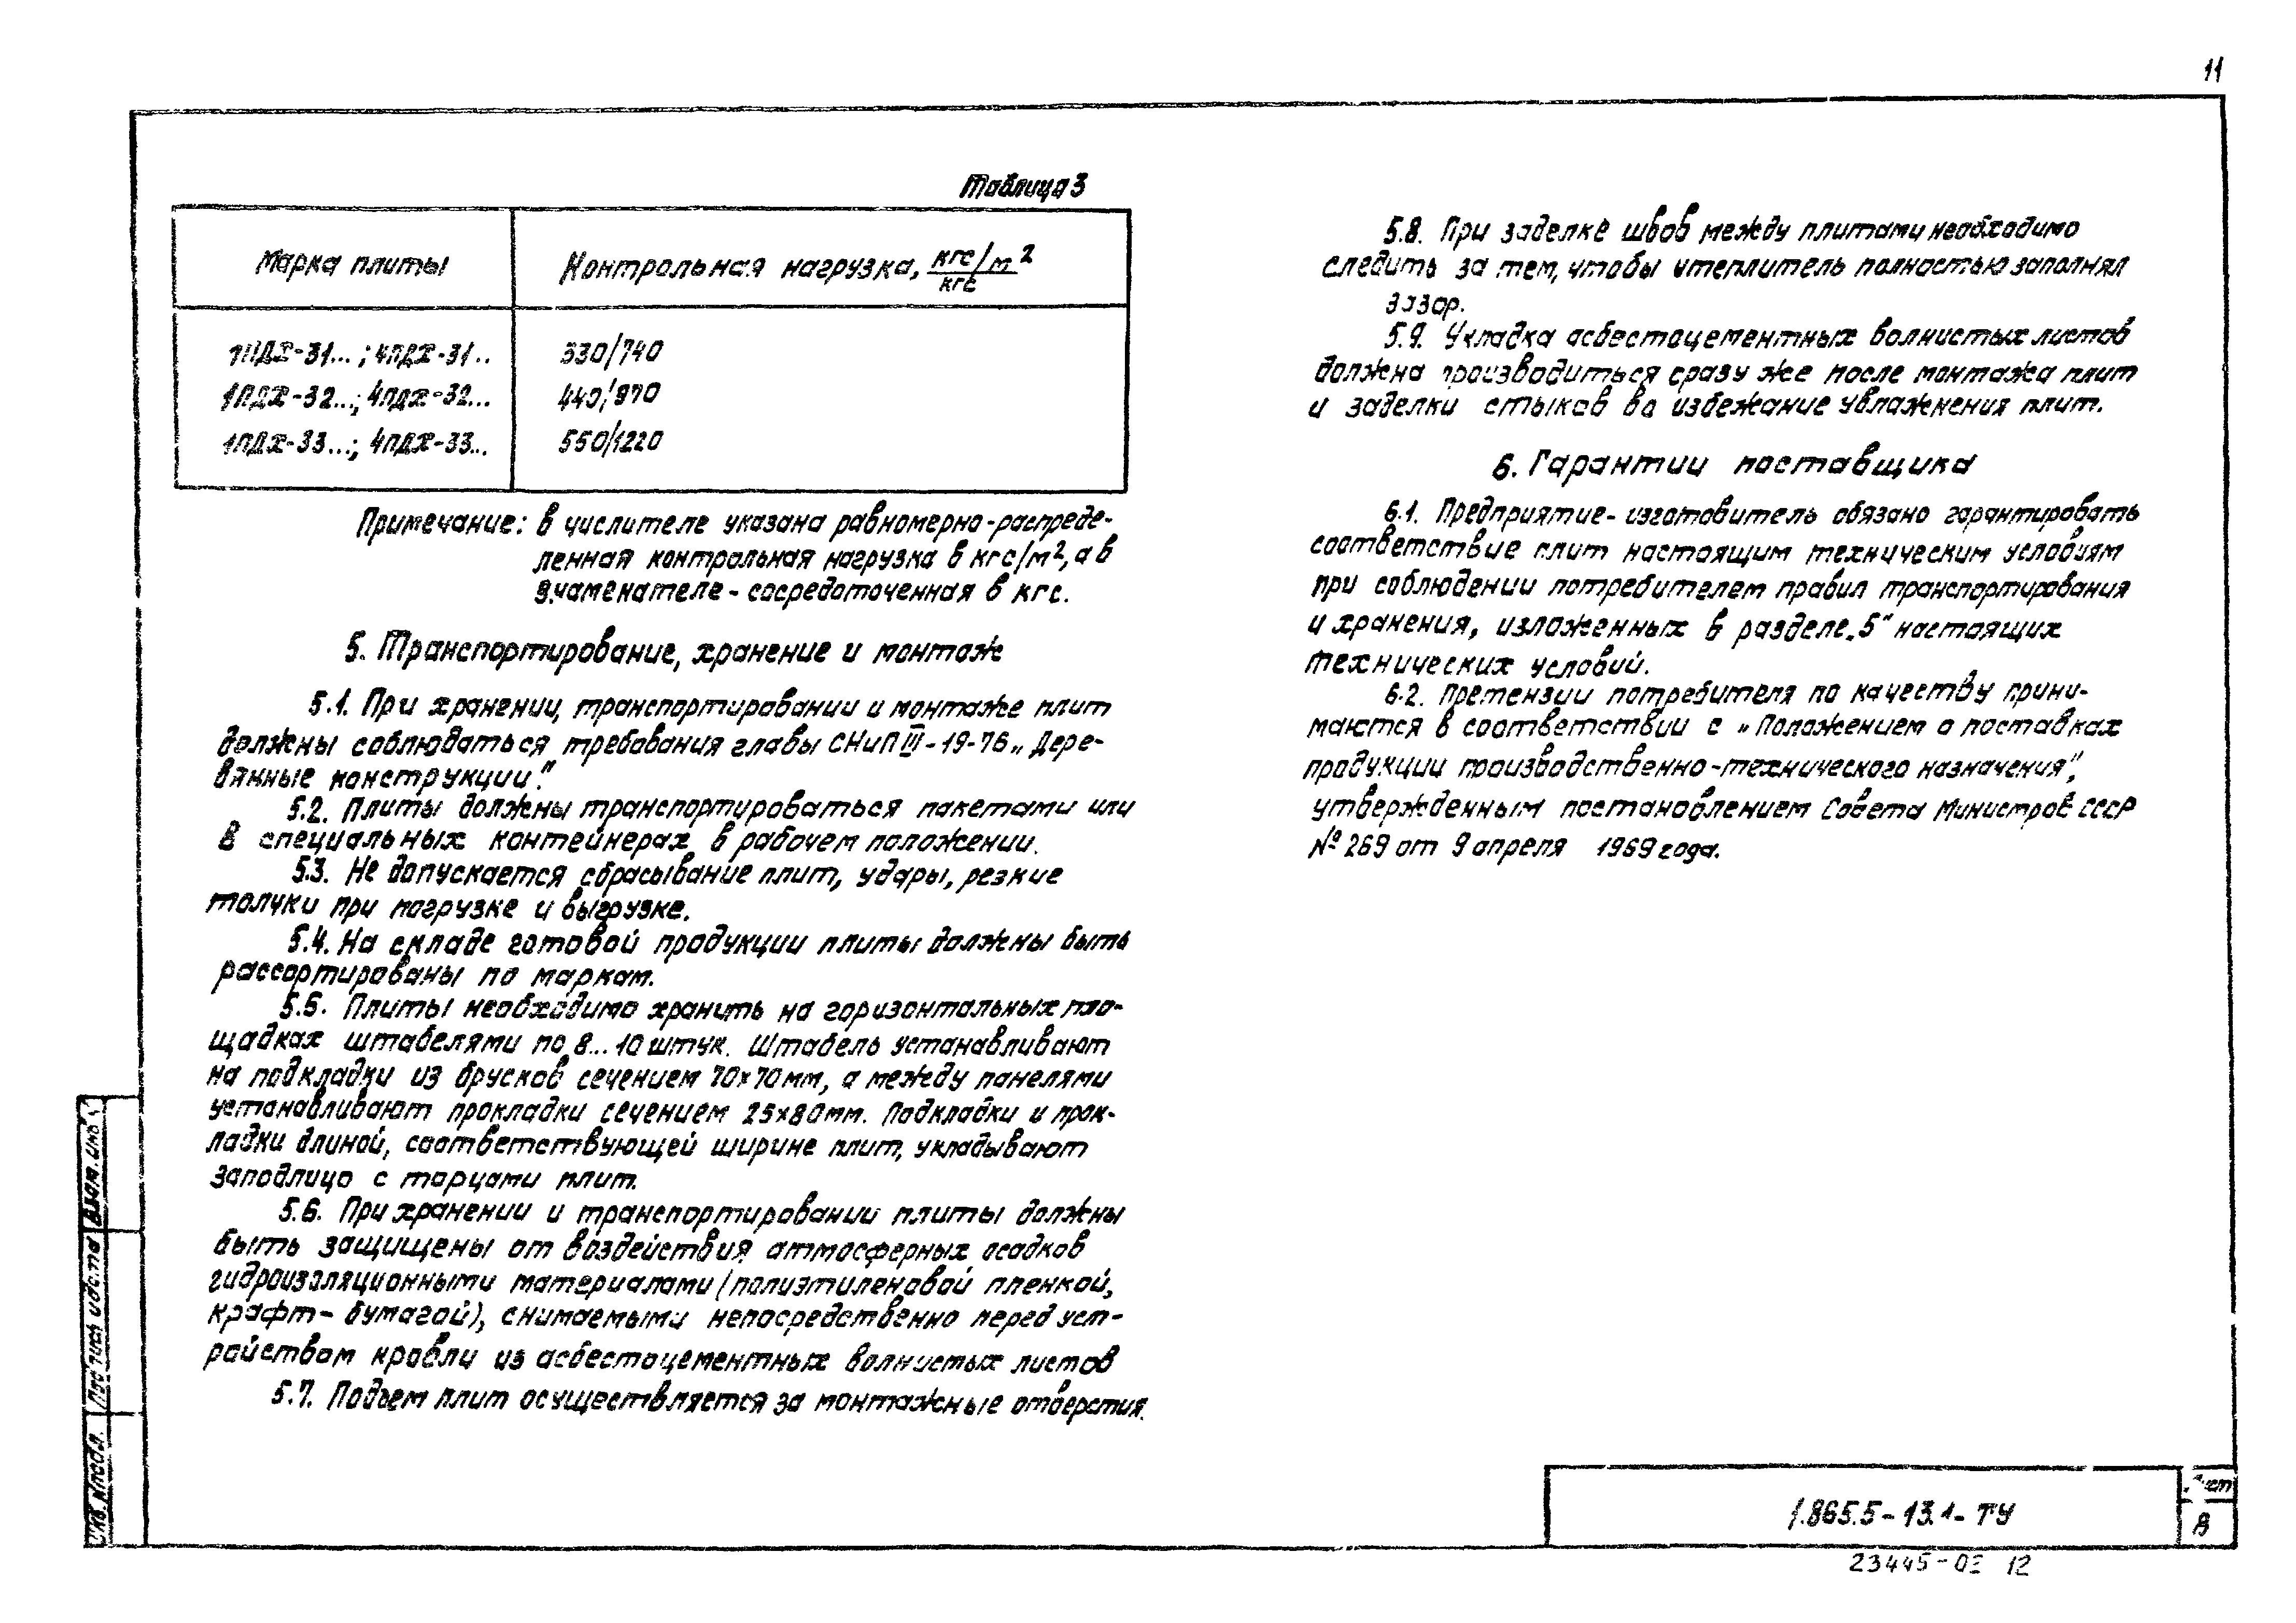 11
Таблица 3
Марка плиты
Контрольная нагрузка, кгс/м²
кгс
1ПДХ-31...; 4ПДХ-31..
330/740
1ПДХ-32...; 4ПДХ-32...
440/970
1ПДХ-33...; 4ПДХ-33..
550/1220
Примечание: в числителе указана равномерно-распреде-
ленная контрольная нагрузка в кгс/м², а в
знаменателе - сосредоточенная в кгс.
5. Транспортирование, хранение и монтаж
5.1. При хранении, транспортировании и монтаже плит
должны соблюдаться требования главы СНиП III-19-76 „Дере-
вянные конструкции."
5.2. Плиты должны транспортироваться пакетами или
в специальных контейнерах в рабочем положении.
5.3. Не допускается сбрасывание плит, удары, резкие
толчки при погрузке и выгрузке.
5.4. На складе готовой продукции плиты должны быть
рассортированы по маркам.
5.5. Плиты необходимо хранить на горизонтальных пло-
щадках штабелями по 8...10 штук. Штабель устанавливают
на подкладки из брусков сечением 70х70мм, а между панелями
устанавливают прокладки сечением 25х80мм. Подкладки и прок-
ладки длиной, соответствующей ширине плит, укладывают
заподлицо с торцами плит.
5.6. При хранении и транспортировании плиты должны
быть защищены от воздействия атмосферных осадков
гидроизоляционными материалами (полиэтиленовой пленкой,
крафт-бумагой), снимаемыми непосредственно перед уст-
ройством кровли из асбестоцементных волнистых листов
5.7. Подъем плит осуществляется за монтажные отверстия.
5.8. При заделке швов между плитами необходимо
следить за тем, чтобы утеплитель полностью заполнял
зазор.
5.9. Укладка асбестоцементных волнистых листов
должна производиться сразу же после монтажа плит
и заделки стыков во избежание увлажнения плит.
6. Гарантии поставщика
6.1. Предприятие-изготовитель обязано гарантировать
соответствие плит настоящим техническим условиям
при соблюдении потребителем правил транспортирования
и хранения, изложенных в разделе „5" настоящих
технических условий.
6.2. Претензии потребителя по качеству прини-
маются в соответствии с „Положением о поставках
продукции производственно-технического назначения",
утвержденным постановлением Совета Министров СССР
№ 269 от 9 апреля 1969 года.
Взам. инв.
Подпись и дата
Инв. № подл.
1.865.5-13.1-ТУ
Лист
8
23445-02 12